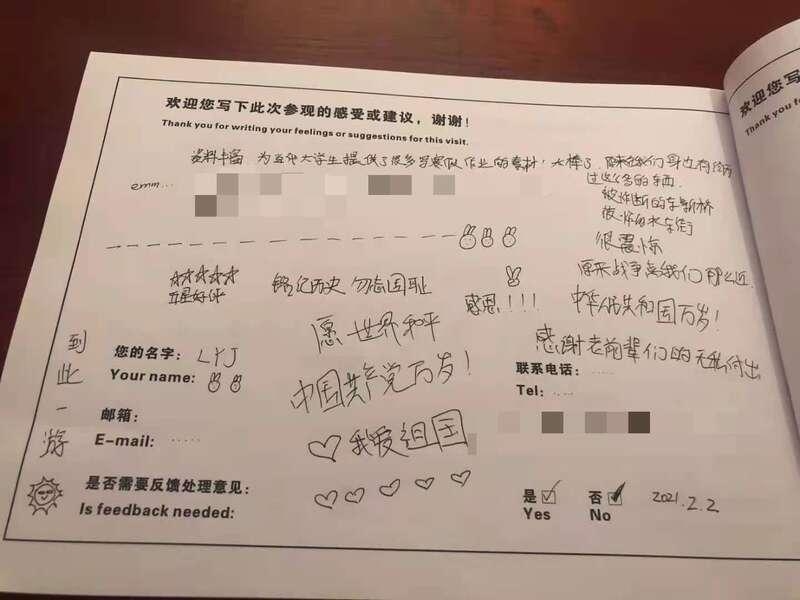 欢迎您写下此次参观的感受或建议，谢谢！
Thank you for writing your feelings or suggestions for this visit.
资料丰富 为五邑大学生提供了很多写寒假作业的素材！太棒了 原来我们身边有经历
过这么多的东西
emm...
被炸断的东新桥
被炸的水东街
很震惊
原来战争离我们那么近
☆☆☆☆☆
五星好评
铭记历史 勿忘国耻
感恩！！！
中华人民共和国万岁！
愿世界和平
感谢老前辈们的无私付出
到此一游
您的名字：LYJ
Your name:
中国共产党万岁！
联系电话：.....
Tel:
邮箱：
E-mail: .....
♡我爱祖国
♡♡♡♡♡
是否需要反馈处理意见：
Is feedback needed:
是☑ 否☑ 2021.2.2
Yes No
欢迎您写
Thank you for